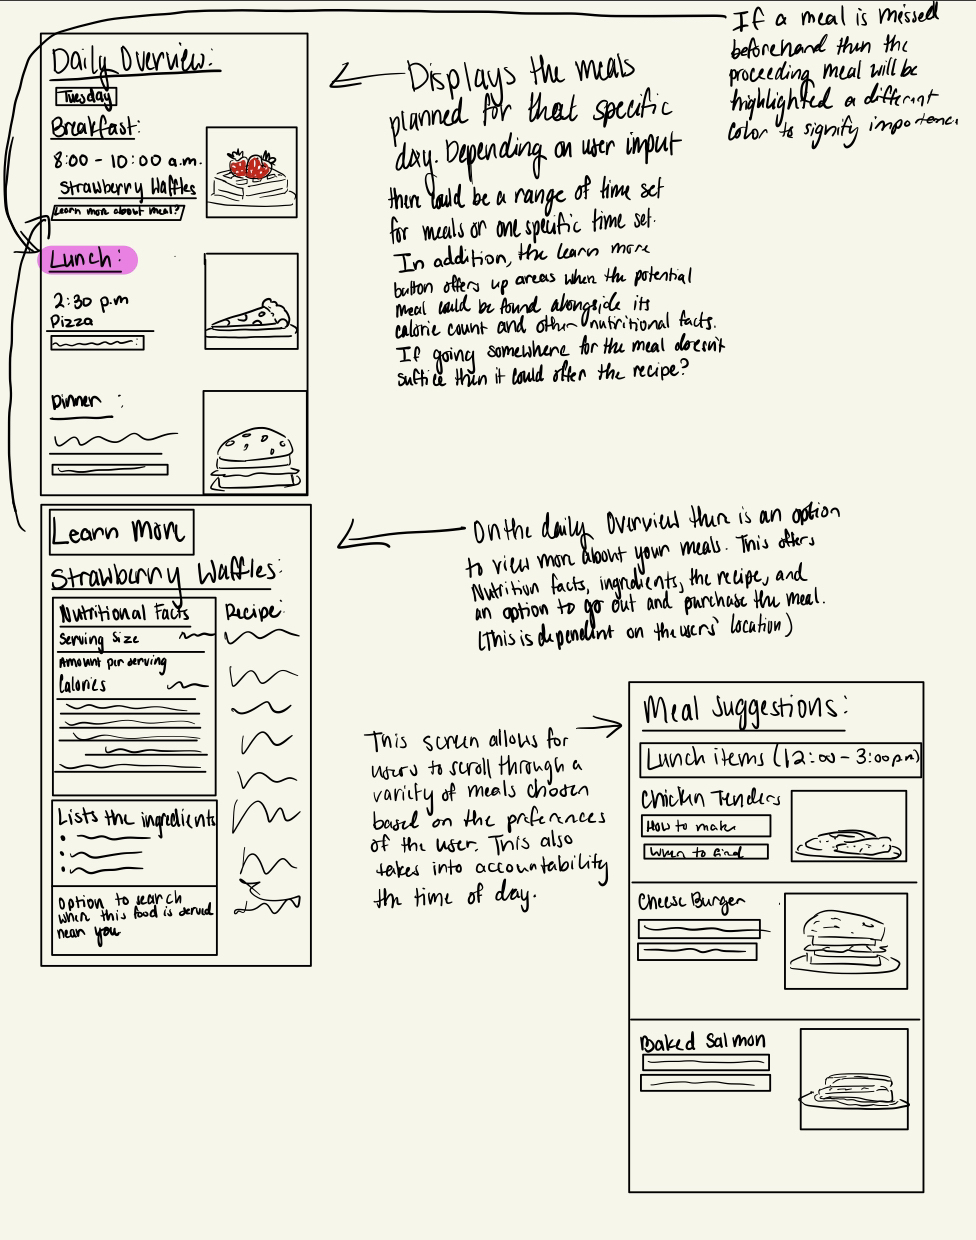 If a meal is missed
beforehand then the
proceeding meal will be
highlighted a different
color to signify importance.
Daily Overview:
Tuesday
Breakfast:
8:00 - 10:00 a.m.
Strawberry Waffles
Learn more about meal?
Lunch:
2:30 p.m
Pizza
Dinner :
Displays the meals
planned for that specific
day. Depending on user input
there could be a range of time set
for meals or one specific time set.
In addition, the learn more
button offers up areas where the potential
meal could be found alongside its
calorie count and other nutritional facts.
If going somewhere for the meal doesn't
suffice then it could offer the recipe?
Learn More
Strawberry Waffles:
Nutritional Facts
Serving Size
Amount per serving
Calories
Recipe:
Lists the ingredients
Option to search
where this food is served
near you
On the daily Overview there is an option
to view more about your meals. This offers
Nutrition facts, ingredients, the recipe, and
an option to go out and purchase the meal.
(This is dependent on the users' location)
This screen allows for
users to scroll through a
variety of meals chosen
based on the preferences
of the user. This also
takes into accountability
the time of day.
Meal Suggestions:
Lunch items (12:00 - 3:00pm)
Chicken Tenders
How to make
Where to find
Cheese Burger
Baked Salmon